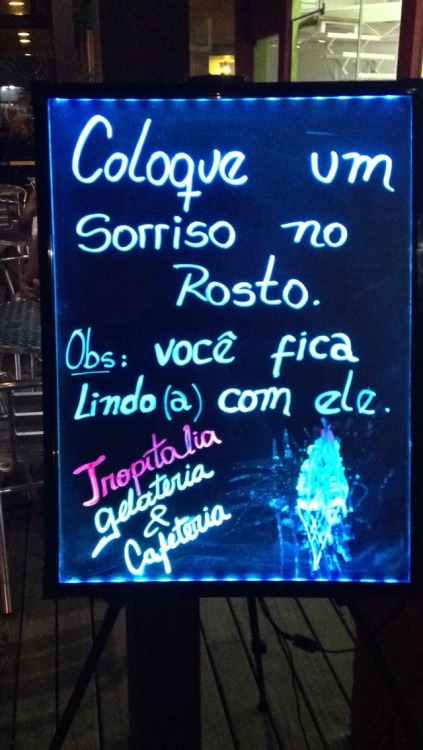 Coloque um
Sorriso no
Rosto.
Obs: você fica
Lindo(a) com ele.
Tropitalia
gelateria
&
Cafeteria